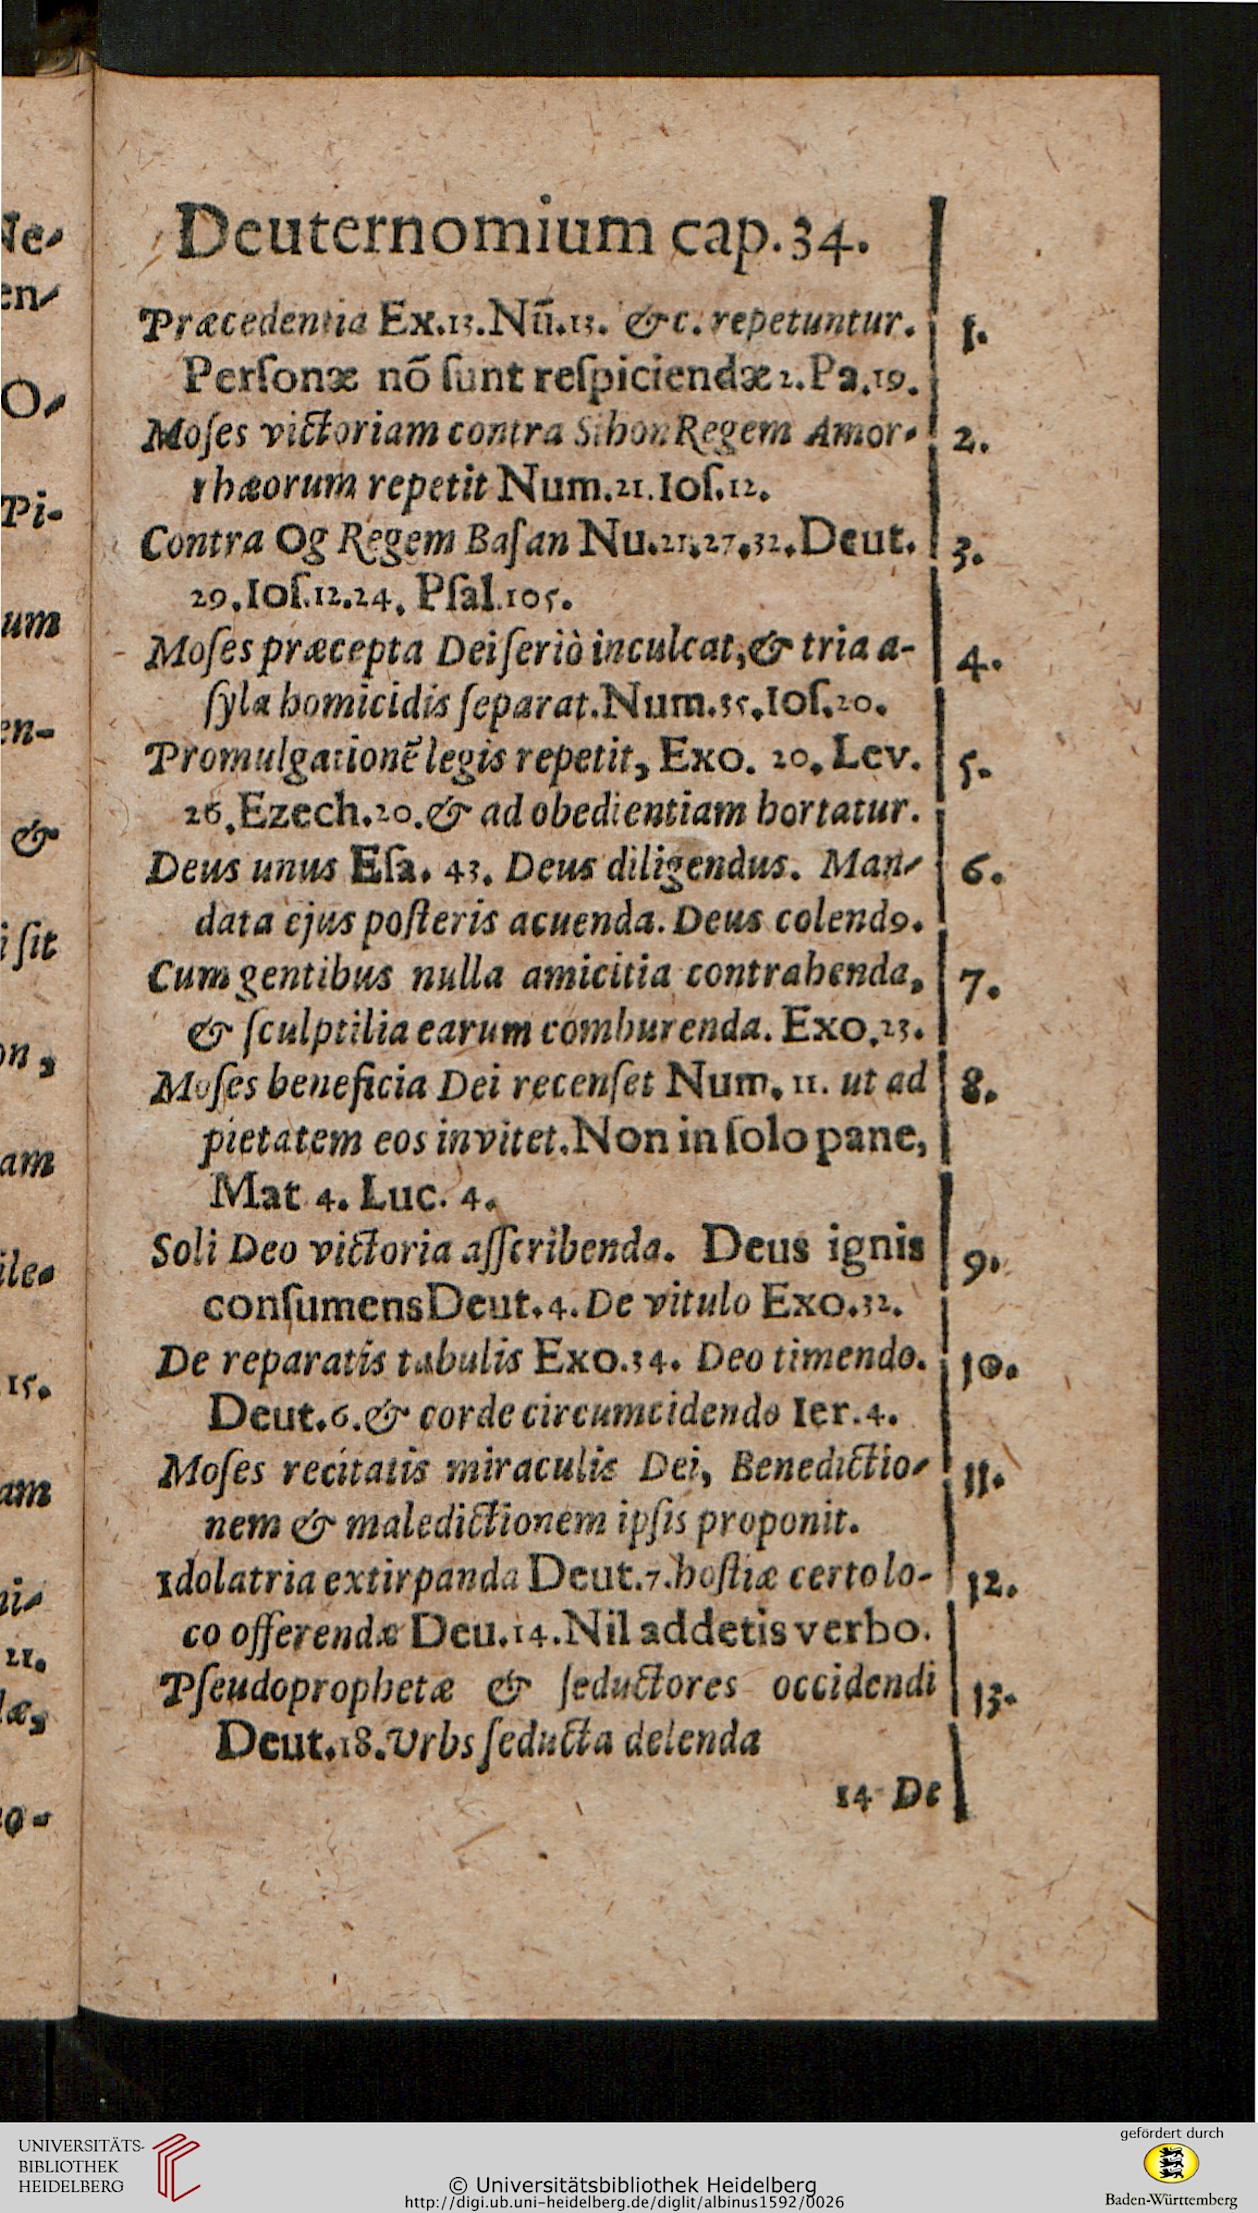 Deuternomium cap.34.
Præcedentia Ex.13.Nū.13. &c. repetuntur. 1.
Perſonæ nō ſunt reſpiciendæ 2.Pa.19.
Moſes victoriam contra Sihon Regem Amor- 2.
rhæorum repetit Num.21.Ioſ.12.
Contra Og Regem Baſan Nu.21.27.32.Deut. 3.
29.Ioſ.12.24. Pſal.105.
Moſes præcepta Dei ſeriò inculcat,& tria a- 4.
ſyla homicidis ſeparat.Num.35.Ioſ.20.
Promulgationē legis repetit, Exo. 20. Lev. 5.
26.Ezech.20.& ad obedientiam hortatur.
Deus unus Eſa. 43. Deus diligendus. Man- 6.
data ejus poſteris acuenda. Deus colendꝰ.
Cum gentibus nulla amicitia contrahenda, 7.
& ſculptilia earum comburenda. Exo.23.
Moſes beneficia Dei recenſet Num. 11. ut ad 8.
pietatem eos invitet.Non in ſolo pane,
Mat 4. Luc. 4.
Soli Deo victoria aſſcribenda. Deus ignis 9.
conſumens Deut.4. De vitulo Exo.32.
De reparatis tabulis Exo.34. Deo timendo. 10.
Deut.6.& corde circumcidendo Ier.4.
Moſes recitatis miraculis Dei, Benedictio- 11.
nem & maledictionem ipſis proponit.
Idolatria extirpanda Deut.7.hoſtiæ certo lo- 12.
co offerendæ Deu.14.Nil addetis verbo.
Pſeudoprophetæ & ſeductores occidendi 13.
Deut.18.Urbs ſeducta delenda
14 De
UNIVERSITÄTS-
BIBLIOTHEK
HEIDELBERG
© Universitätsbibliothek Heidelberg
http://digi.ub.uni-heidelberg.de/diglit/albinus1592/0026
gefördert durch
Baden-Württemberg